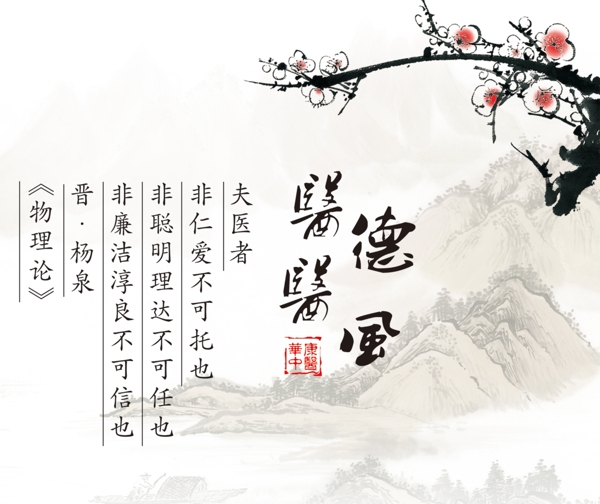 醫德
醫風
華康
中醫
夫医者
非仁爱不可托也
非聪明理达不可任也
非廉洁淳良不可信也
晋·杨泉
《物理论》